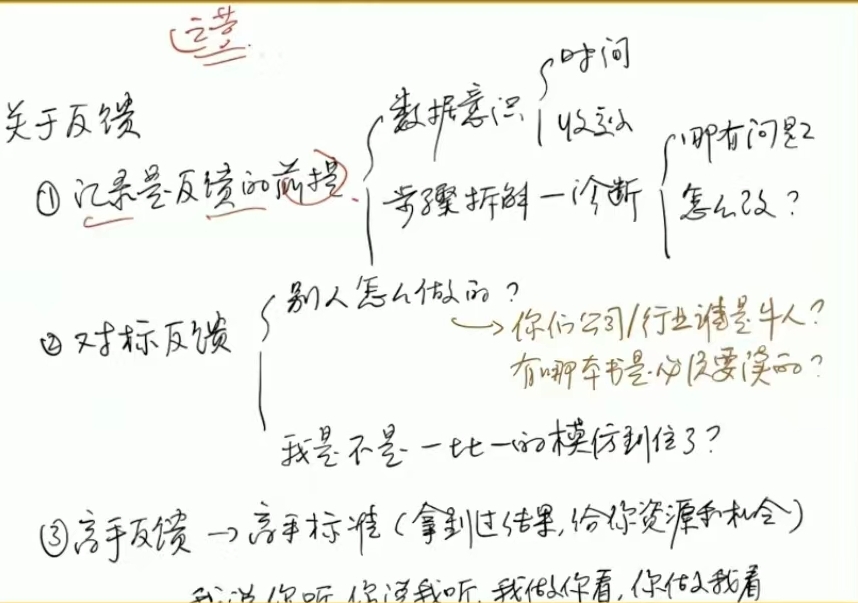 运营
关于反馈
①记录是反馈的前提
数据意识
时间
收益
步骤拆解－诊断
哪有问题
怎么改?
②对标反馈
别人怎么做的?
→你们公司/行业谁是牛人?
有哪本书是必须要读的?
我是不是一比一的模仿到位了?
③高手反馈→高手标准(拿到过结果,给你资源和机会)
我说你听,你说我听,我做你看,你做我看